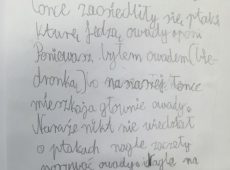 łące zasiedliły się ptaki
które jedzą owady oponi
Ponieważ byłem owadem (bie-
dronką) to na naszej łonce
mieszkają głównie owady.
Narazie nikt nie wiedział
o ptakach nagle zaczęły
porywać owady. Nagle na